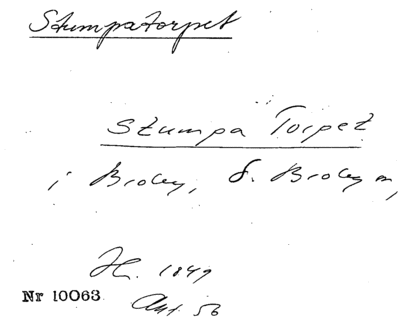 Stumpatorpet
Stumpa Torpet
i Broby, Ö. Broby sn,
Hf. 1849
Nr 10063
Akt 56